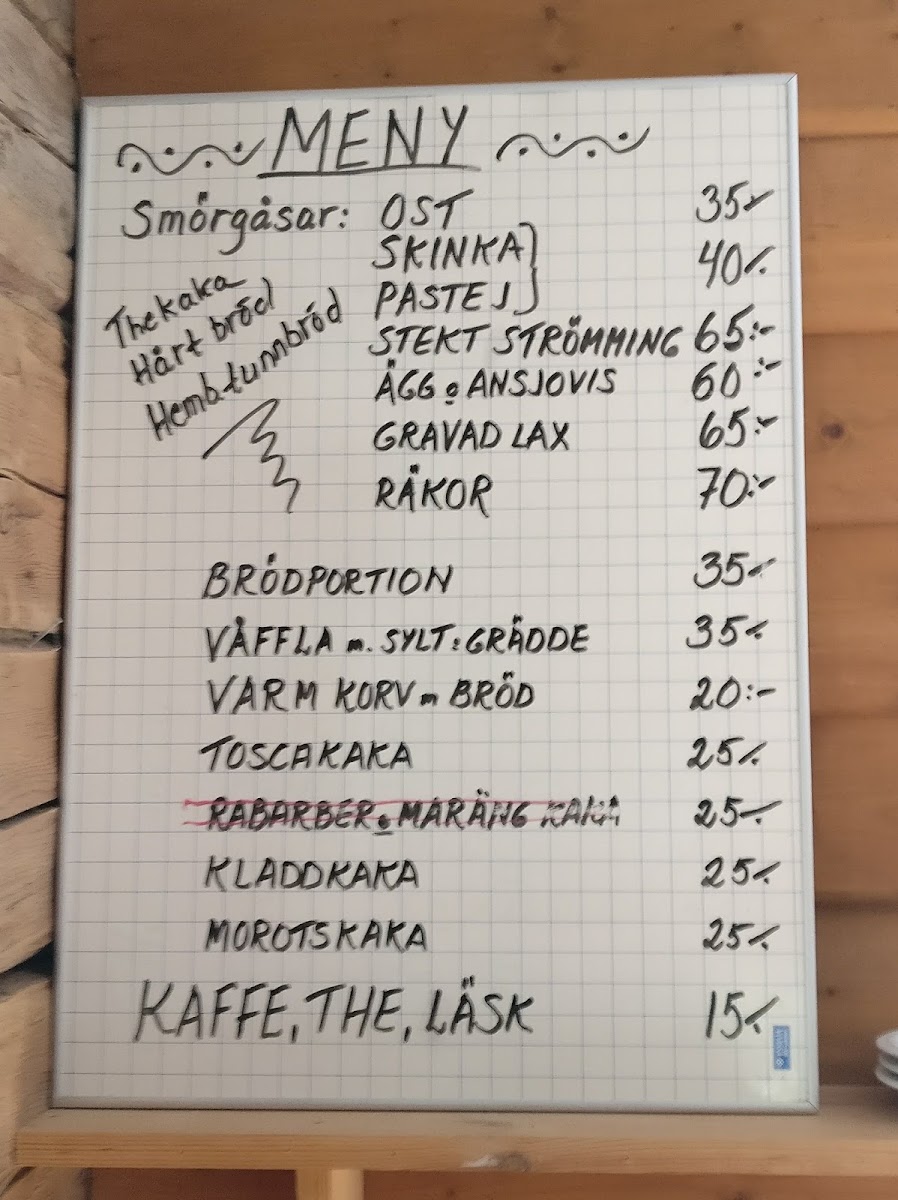 MENY
Smörgåsar: OST 35:-
SKINKA
40:-
PASTEJ
Thekaka
Hårt bröd
Hemb. tunnbröd
STEKT STRÖMMING 65:-
ÄGG o ANSJOVIS 60:-
GRAVAD LAX 65:-
RÄKOR 70:-
BRÖDPORTION 35:-
VÅFFLA m. SYLT : GRÄDDE 35:-
VARM KORV m BRÖD 20:-
TOSCAKAKA 25:-
RABARBER o MARÄNG KAKA 25:-
KLADDKAKA 25:-
MOROTSKAKA 25:-
KAFFE, THE, LÄSK 15:-